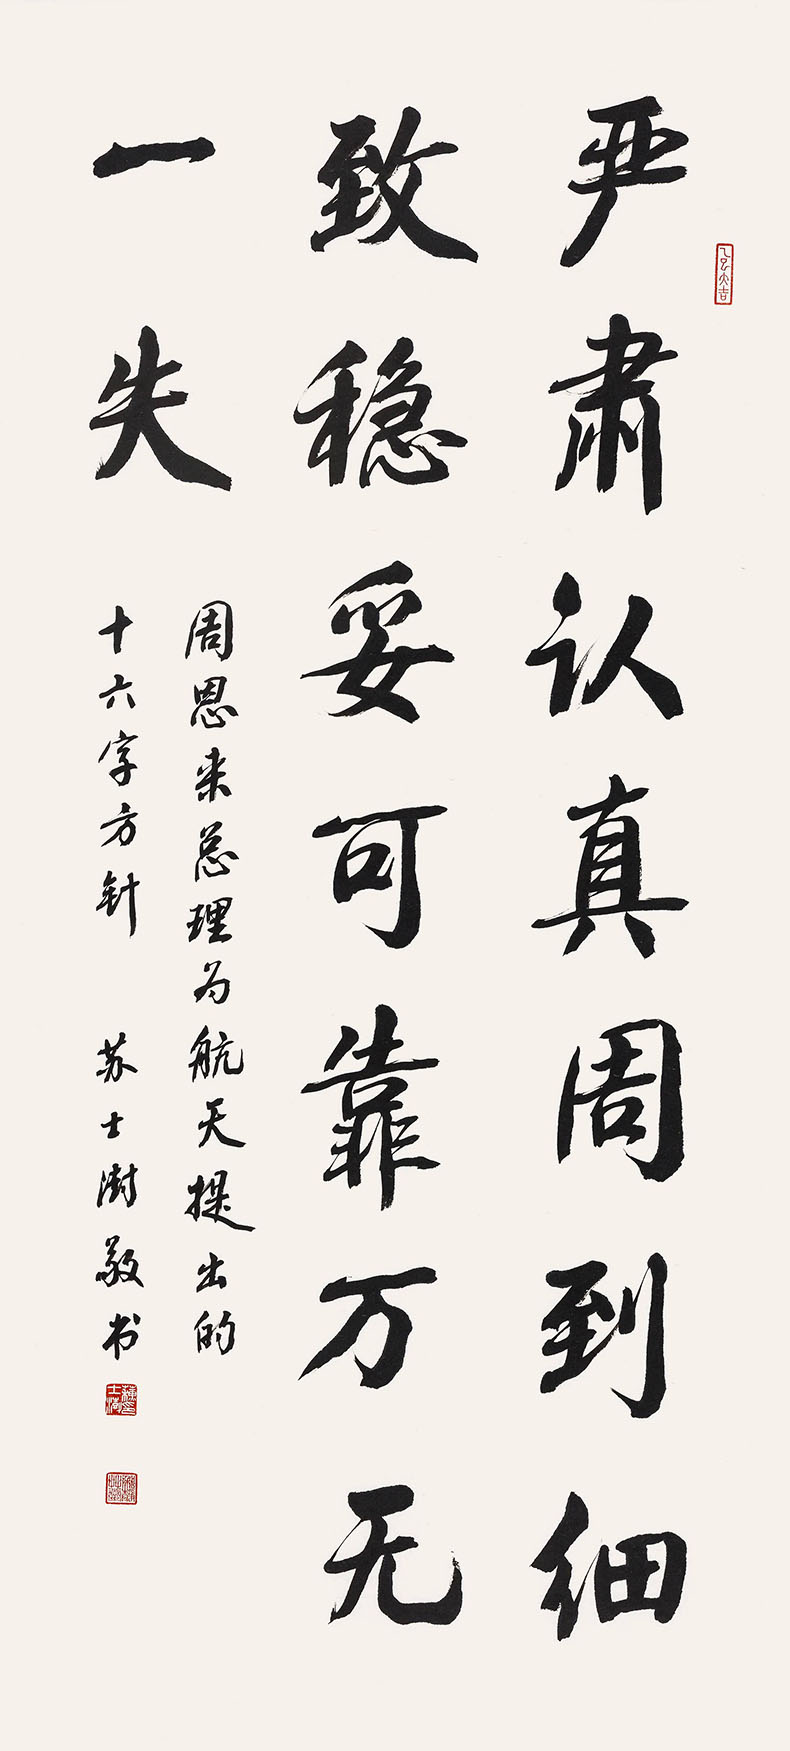 严肃认真周到细
致稳妥可靠万无
一失
周恩来总理为航天提出的
十六字方针 苏士澍敬书